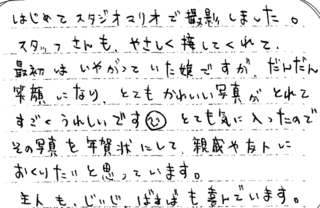 はじめてスタジオマリオで撮影しました。
スタッフさんも、やさしく接してくれて、
最初はいやがっていた娘ですが、だんだん
笑顔になり、とてもかわいい写真がとれて
すごくうれしいです☺ とても気に入ったので
その写真を年賀状にして、親戚や友人に
おくりたいと思っています。
主人も、じぃじ、ばぁばも喜んでいます。